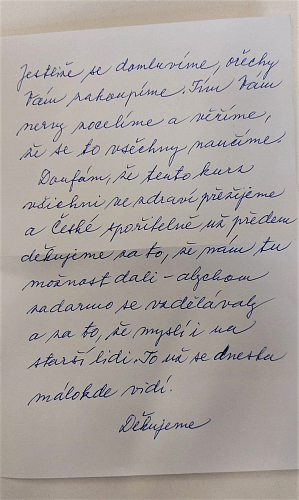 Jestliže se domluvíme, ořechy
Vám zakoupíme. Tím Vám
nervy zocelíme a věříme,
že se to všechny naučíme.
Doufám, že tento kurs
všichni ve zdraví přežijeme
a České spořitelně už předem
děkujeme za to, že nám tu
možnost dali - abychom
zadarmo se vzdělávaly
a za to, že myslí i na
starší lidi. To už se dneska
málokde vidí.
Děkujeme